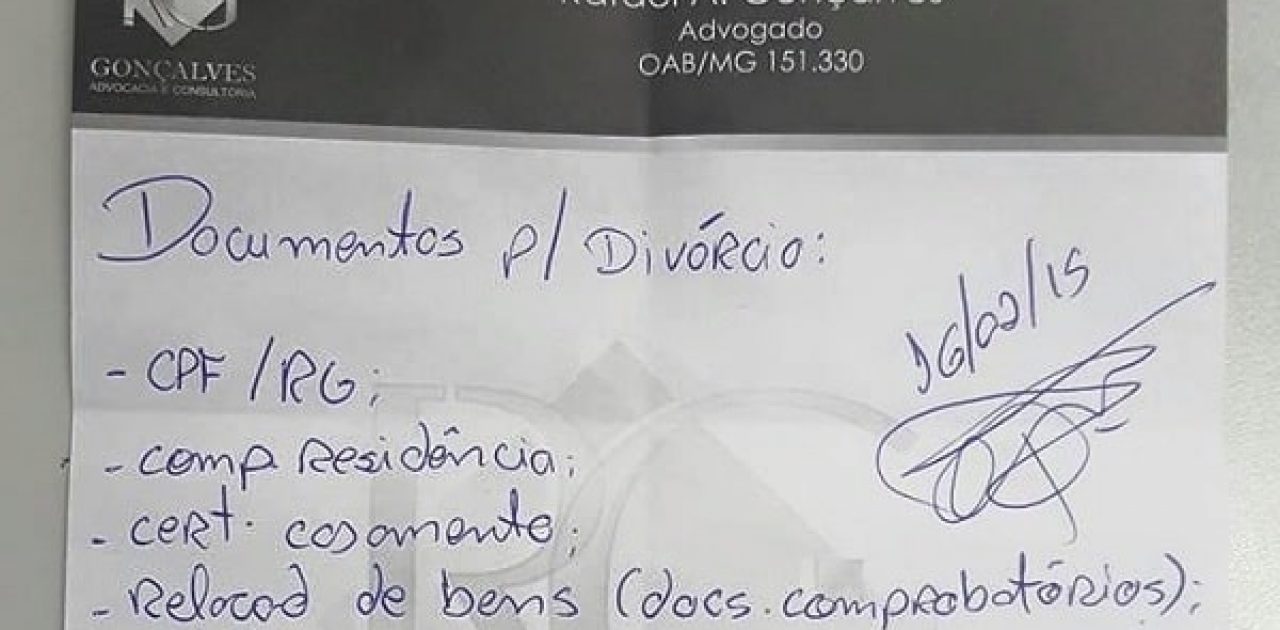 Rafael A. Gonçalves
Advogado
OAB/MG 151.330
GONÇALVES
ADVOCACIA E CONSULTORIA
Documentos p/ Divórcio:
16/02/15
- CPF/RG;
- comp Residência;
- cert. casamento;
- Relacad de bens (docs. comprobatórios);